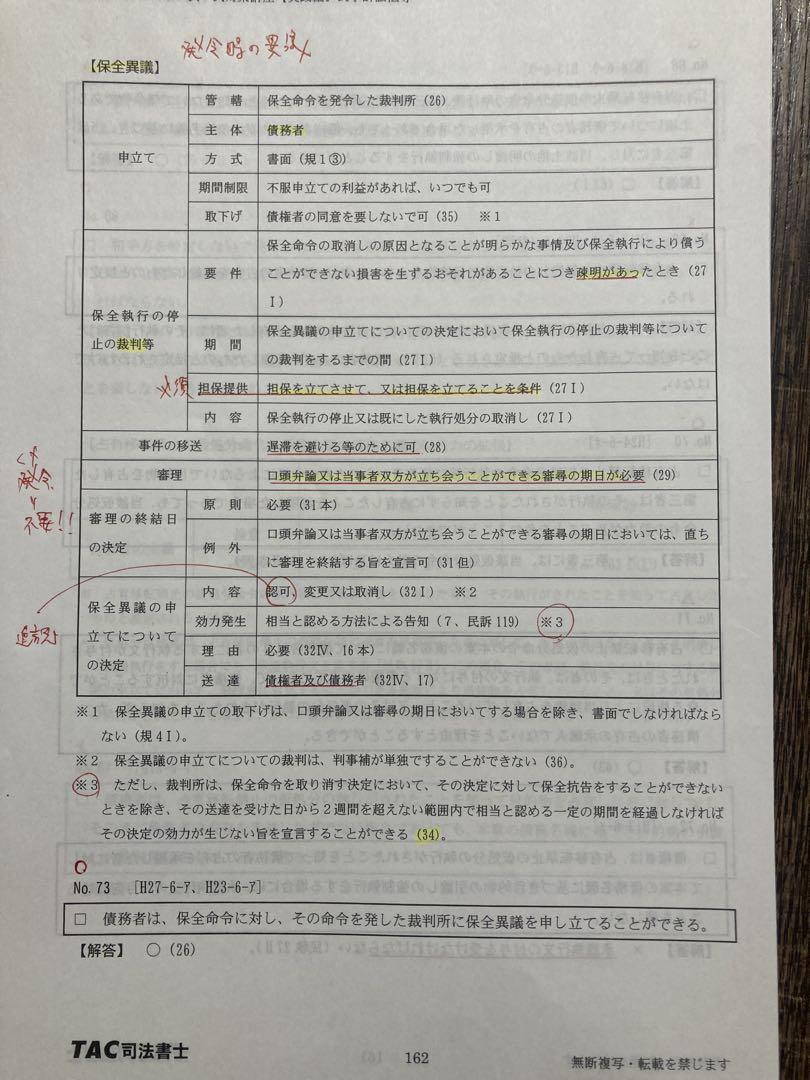 発令時の要領
【保全異議】
申立て
管轄 保全命令を発令した裁判所（26）
主体 債務者
方式 書面（規１③）
期間制限 不服申立ての利益があれば、いつでも可
取下げ 債権者の同意を要しないで可（35） ※１
保全執行の停止の裁判等
要件 保全命令の取消しの原因となることが明らかな事情及び保全執行により償う
ことができない損害を生ずるおそれがあることにつき疎明があったとき（27
Ⅰ）
期間 保全異議の申立てについての決定において保全執行の停止の裁判等について
の裁判をするまでの間（27Ⅰ）
必須 担保提供 担保を立てさせて、又は担保を立てることを条件（27Ⅰ）
内容 保全執行の停止又は既にした執行処分の取消し（27Ⅰ）
事件の移送 遅滞を避ける等のために可（28）
審理 口頭弁論又は当事者双方が立ち会うことができる審尋の期日が必要（29）
発令
不要!!
審理の終結日
の決定
原則 必要（31本）
例外 口頭弁論又は当事者双方が立ち会うことができる審尋の期日においては、直ち
に審理を終結する旨を宣言可（31但）
保全異議の申
立てについて
の決定
内容 認可、変更又は取消し（32Ⅰ） ※２
効力発生 相当と認める方法による告知（７、民訴119） ※３
理由 必要（32Ⅳ、16本）
送達 債権者及び債務者（32Ⅳ、17）
※１ 保全異議の申立ての取下げは、口頭弁論又は審尋の期日においてする場合を除き、書面でしなければなら
ない（規４Ⅰ）。
※２ 保全異議の申立てについての裁判は、判事補が単独ですることができない（36）。
※３ ただし、裁判所は、保全命令を取り消す決定において、その決定に対して保全抗告をすることができない
ときを除き、その送達を受けた日から２週間を超えない範囲内で相当と認める一定の期間を経過しなければ
その決定の効力が生じない旨を宣言することができる（34）。
No. 73 [H27-6-ア、H23-6-ア]
□ 債務者は、保全命令に対し、その命令を発した裁判所に保全異議を申し立てることができる。
【解答】 ○（26）
TAC司法書士
162
無断複写・転載を禁じます